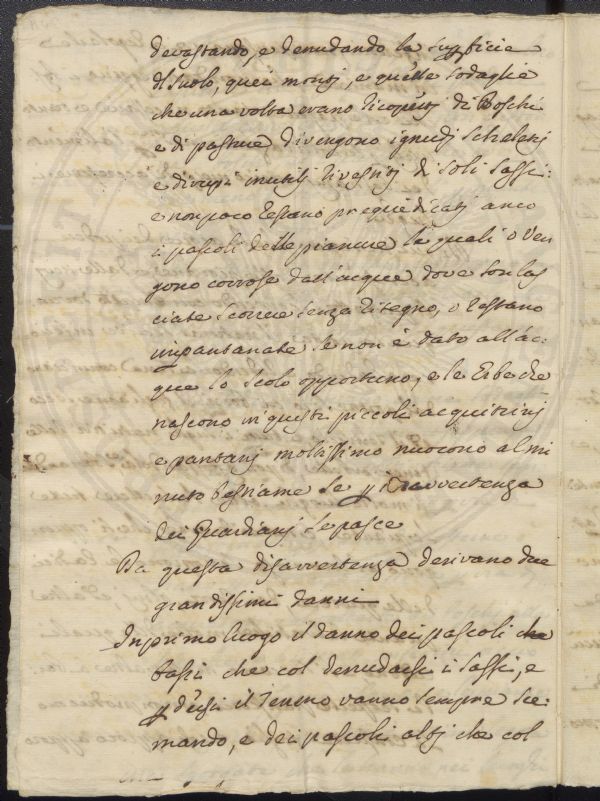 devastando, e denudando la supficie
del suolo, quei montj, e quelle sodaglie
che una volta erano ricopertj di Boschi
e di pasture divengono ignudj scheletrj
e dirupi inutilj rivestitj di soli sassi:
e non poco restano pregiudicatj anco
i pascoli delle pianure le quali o ven
gono corrose dall'acque dove son las
ciate scorrere senza ritegno, o restano
impantanate se non è dato all'ac:
que lo scolo opportuno, e le Erbe che
nascono in questi piccoli acquitrinj
e pantanj moltissimo nuocono al mi
nuto bestiame se p inavvertenza
dei Guardianj se pasce
Da questa disavvertenza derivano due
grandissimi danni
In primo luogo il danno dei pascoli che
bassi che col denudarsi i sassi, e
p dersi il terreno vanno sempre sce:
mando, e dei pascoli altj che col